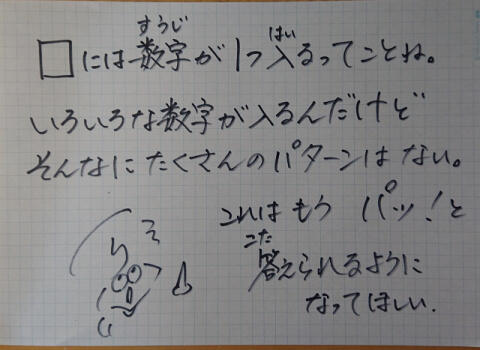 □には数字が1つ入るってことね。
すうじ
はい
いろいろな数字が入るんだけど
そんなにたくさんのパターンはない。
これはもう パッ!と
こた
答えられるように
なってほしい.